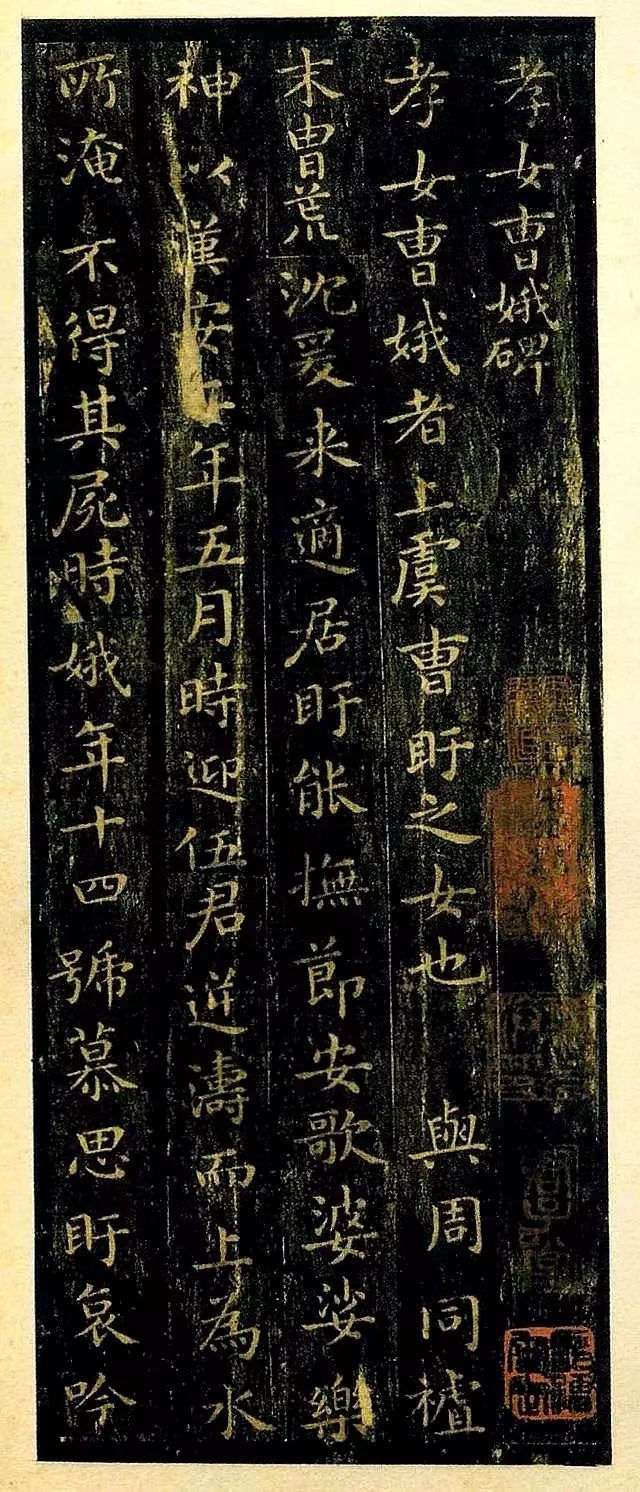 孝女曹娥碑
孝女曹娥者上虞曹盱之女也與周同
末胄荒沈爰来適居盱能撫節安歌婆娑樂
神以漢安年五月時迎伍君逆濤而上為水
所淹不得其屍時娥年十四號慕思盱哀吟